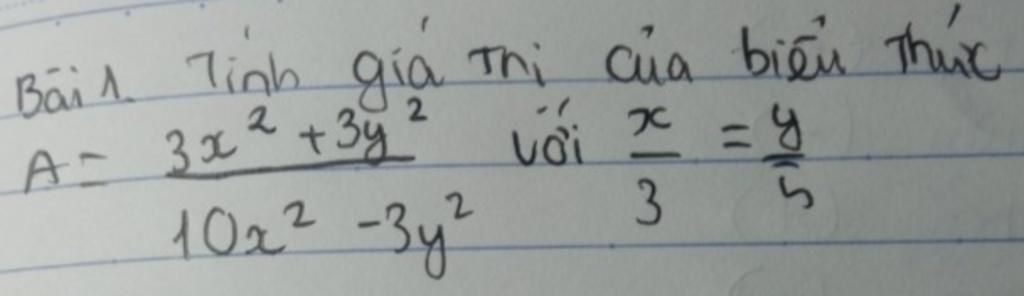 Bài 1. Tính giá Trị của biểu thức
A = \frac{3x^2 + 3y^2}{10x^2 - 3y^2} với \frac{x}{3} = \frac{y}{5}